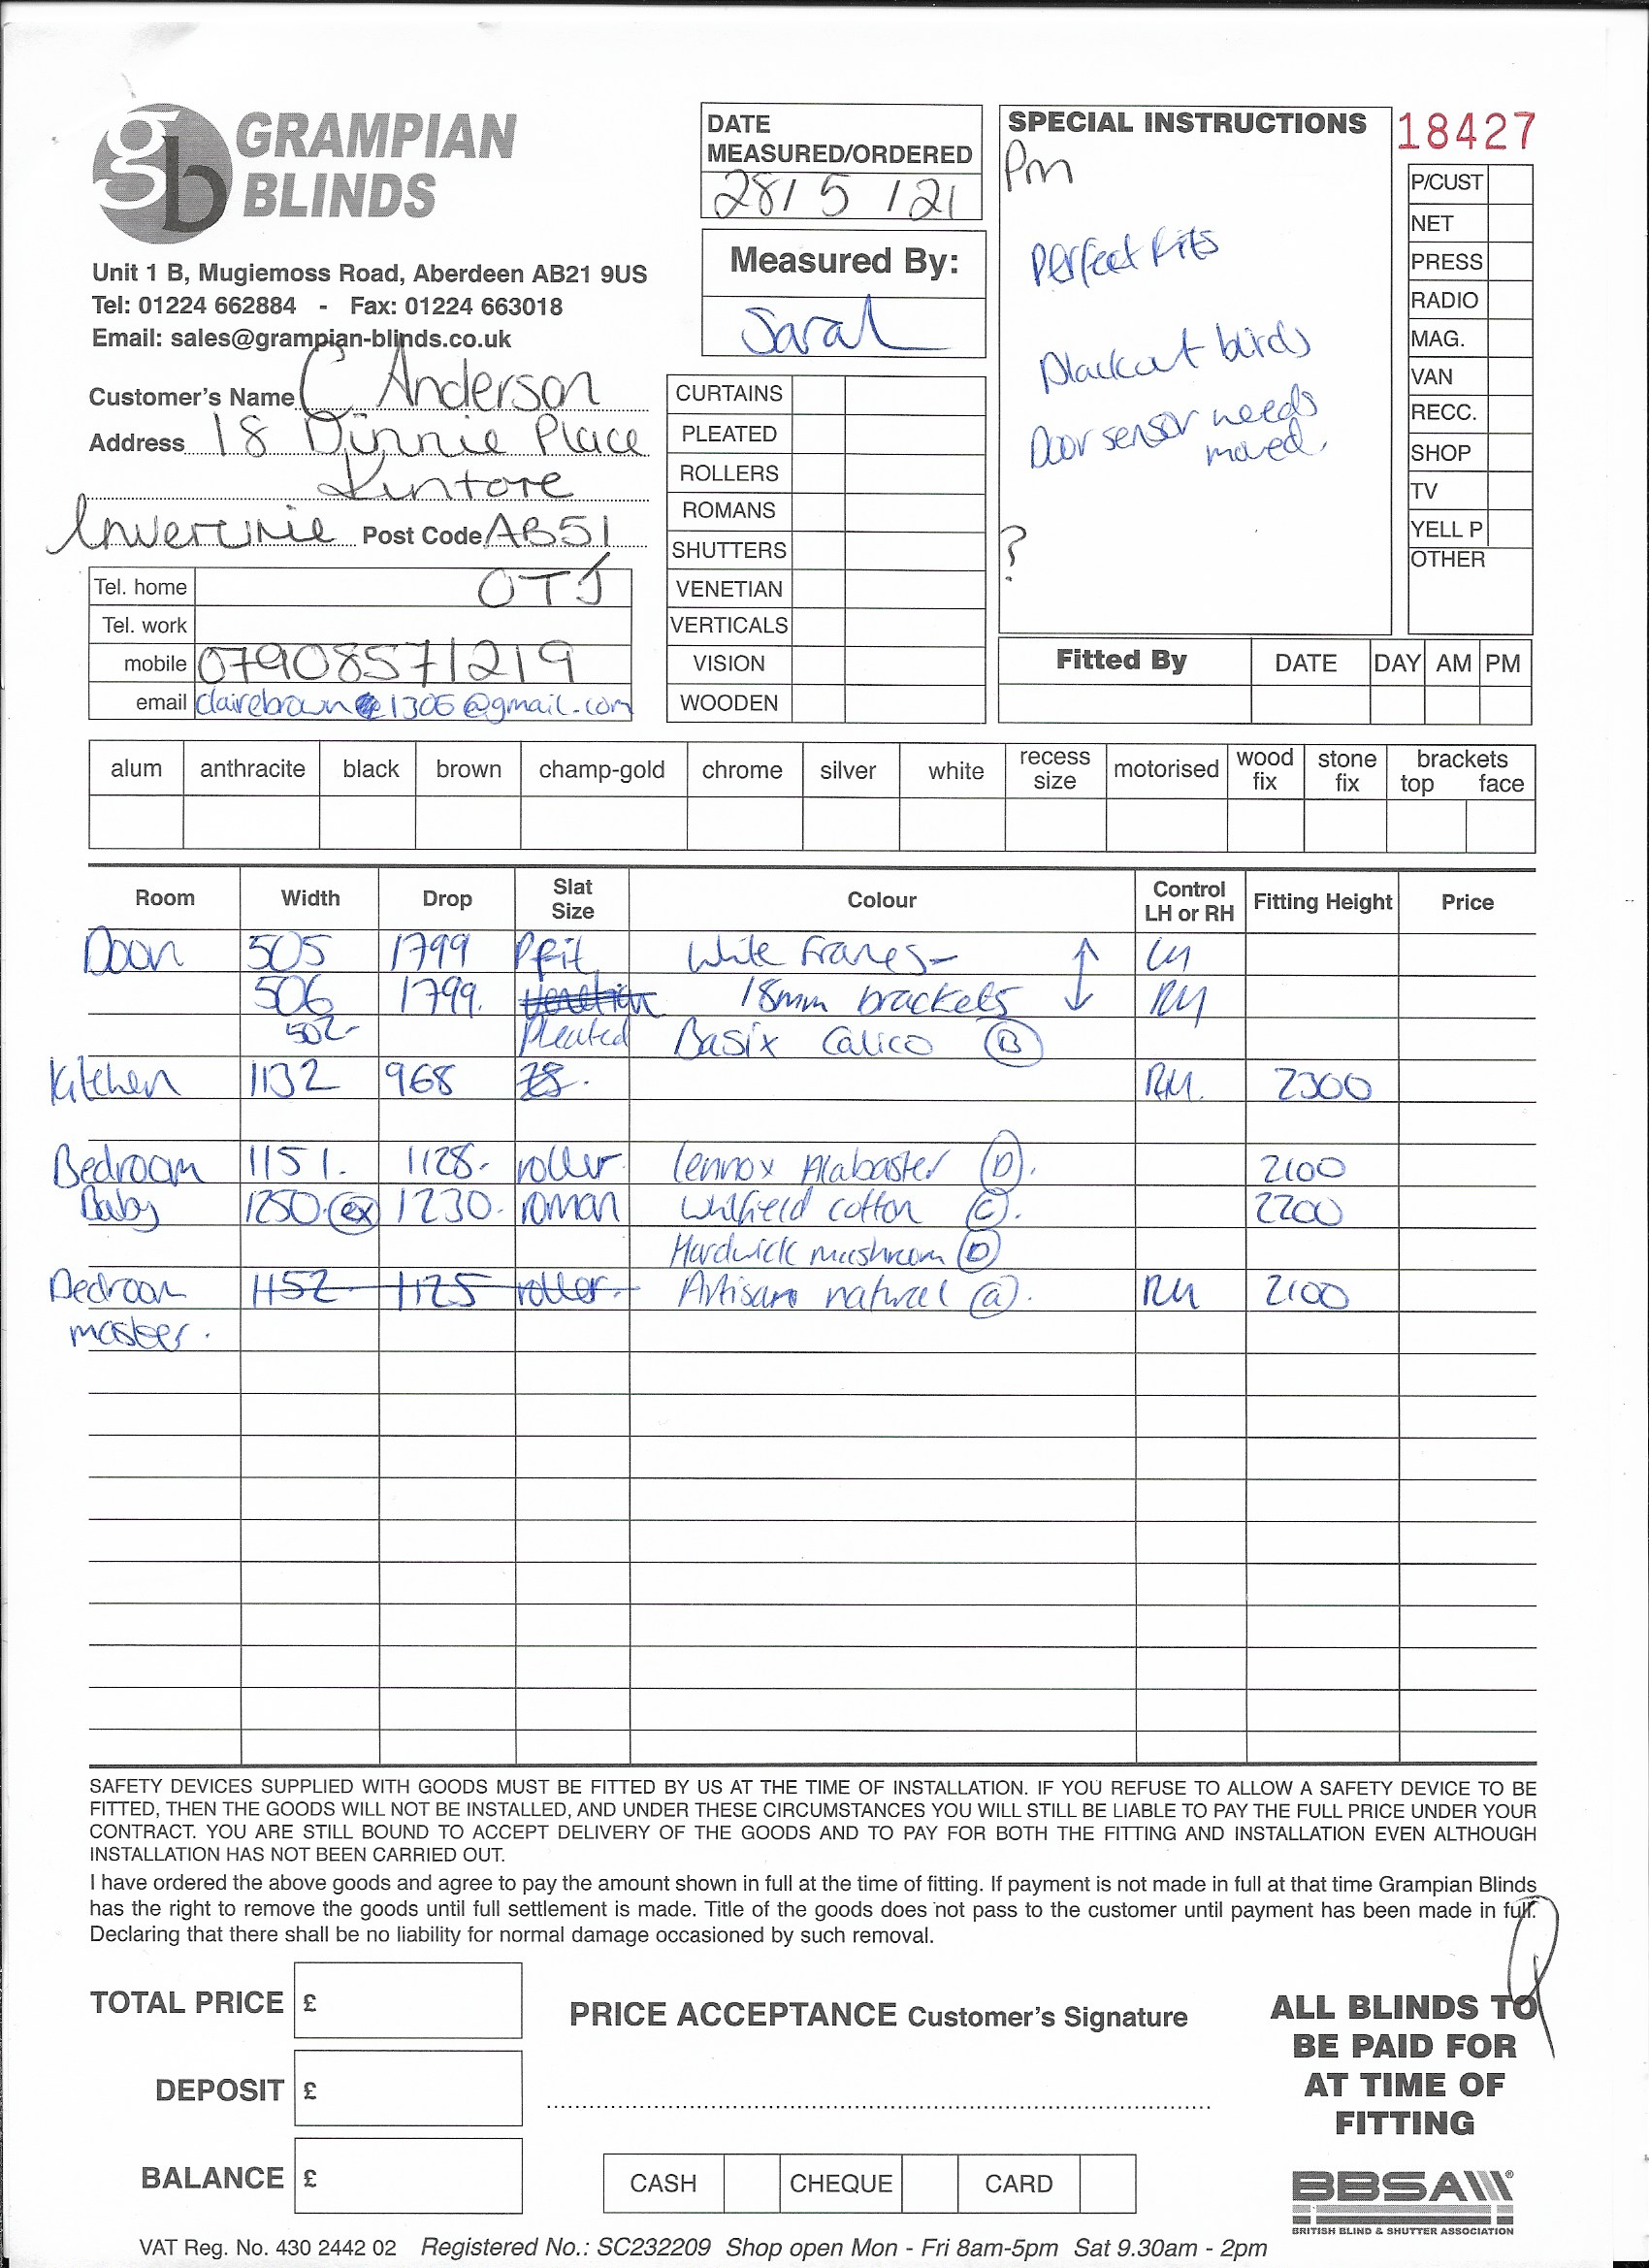 GRAMPIAN
BLINDS
Unit 1 B, Mugiemoss Road, Aberdeen AB21 9US
Tel: 01224 662884 - Fax: 01224 663018
Email: sales@grampian-blinds.co.uk
Customer's Name C Anderson
Address 18 Dinnie Place
Kintore
Inverurie Post Code AB51
Tel. home 0TJ
Tel. work
mobile 07908571219
email clairebrown1306@gmail.com
DATE
MEASURED/ORDERED
28/5/21
Measured By:
Sarah
CURTAINS
PLEATED
ROLLERS
ROMANS
SHUTTERS
VENETIAN
VERTICALS
VISION
WOODEN
SPECIAL INSTRUCTIONS
Pm
Perfect Fits
Blackout blinds
Door sensor needs
moved.
?
18427
P/CUST
NET
PRESS
RADIO
MAG.
VAN
RECC.
SHOP
TV
YELL P
OTHER
Fitted By DATE DAY AM PM
alum anthracite black brown champ-gold chrome silver white recess size motorised wood fix stone fix brackets top face
Room Width Drop Slat Size Colour Control LH or RH Fitting Height Price
Door 505 1799 Pfit White Frames- LH
506 1799. venetian 18mm brackets RH
502- Pleated Basix Calico B
Kitchen 1132 968 RH. 2300
Bedroom 1151. 1128. roller Lennox Alabaster D. 2100
Baby 1250 ex 1230. roman cotton C. 2200
Hardwick mushroom D
Bedroom 1152 1125 roller Artisan natural a. RH 2100
master.
SAFETY DEVICES SUPPLIED WITH GOODS MUST BE FITTED BY US AT THE TIME OF INSTALLATION. IF YOU REFUSE TO ALLOW A SAFETY DEVICE TO BE
FITTED, THEN THE GOODS WILL NOT BE INSTALLED, AND UNDER THESE CIRCUMSTANCES YOU WILL STILL BE LIABLE TO PAY THE FULL PRICE UNDER YOUR
CONTRACT. YOU ARE STILL BOUND TO ACCEPT DELIVERY OF THE GOODS AND TO PAY FOR BOTH THE FITTING AND INSTALLATION EVEN ALTHOUGH
INSTALLATION HAS NOT BEEN CARRIED OUT.
I have ordered the above goods and agree to pay the amount shown in full at the time of fitting. If payment is not made in full at that time Grampian Blinds
has the right to remove the goods until full settlement is made. Title of the goods does not pass to the customer until payment has been made in full.
Declaring that there shall be no liability for normal damage occasioned by such removal.
TOTAL PRICE £
DEPOSIT £
BALANCE £
PRICE ACCEPTANCE Customer's Signature
CASH CHEQUE CARD
ALL BLINDS TO
BE PAID FOR
AT TIME OF
FITTING
BBSA
BRITISH BLIND & SHUTTER ASSOCIATION
VAT Reg. No. 430 2442 02 Registered No.: SC232209 Shop open Mon - Fri 8am-5pm Sat 9.30am - 2pm